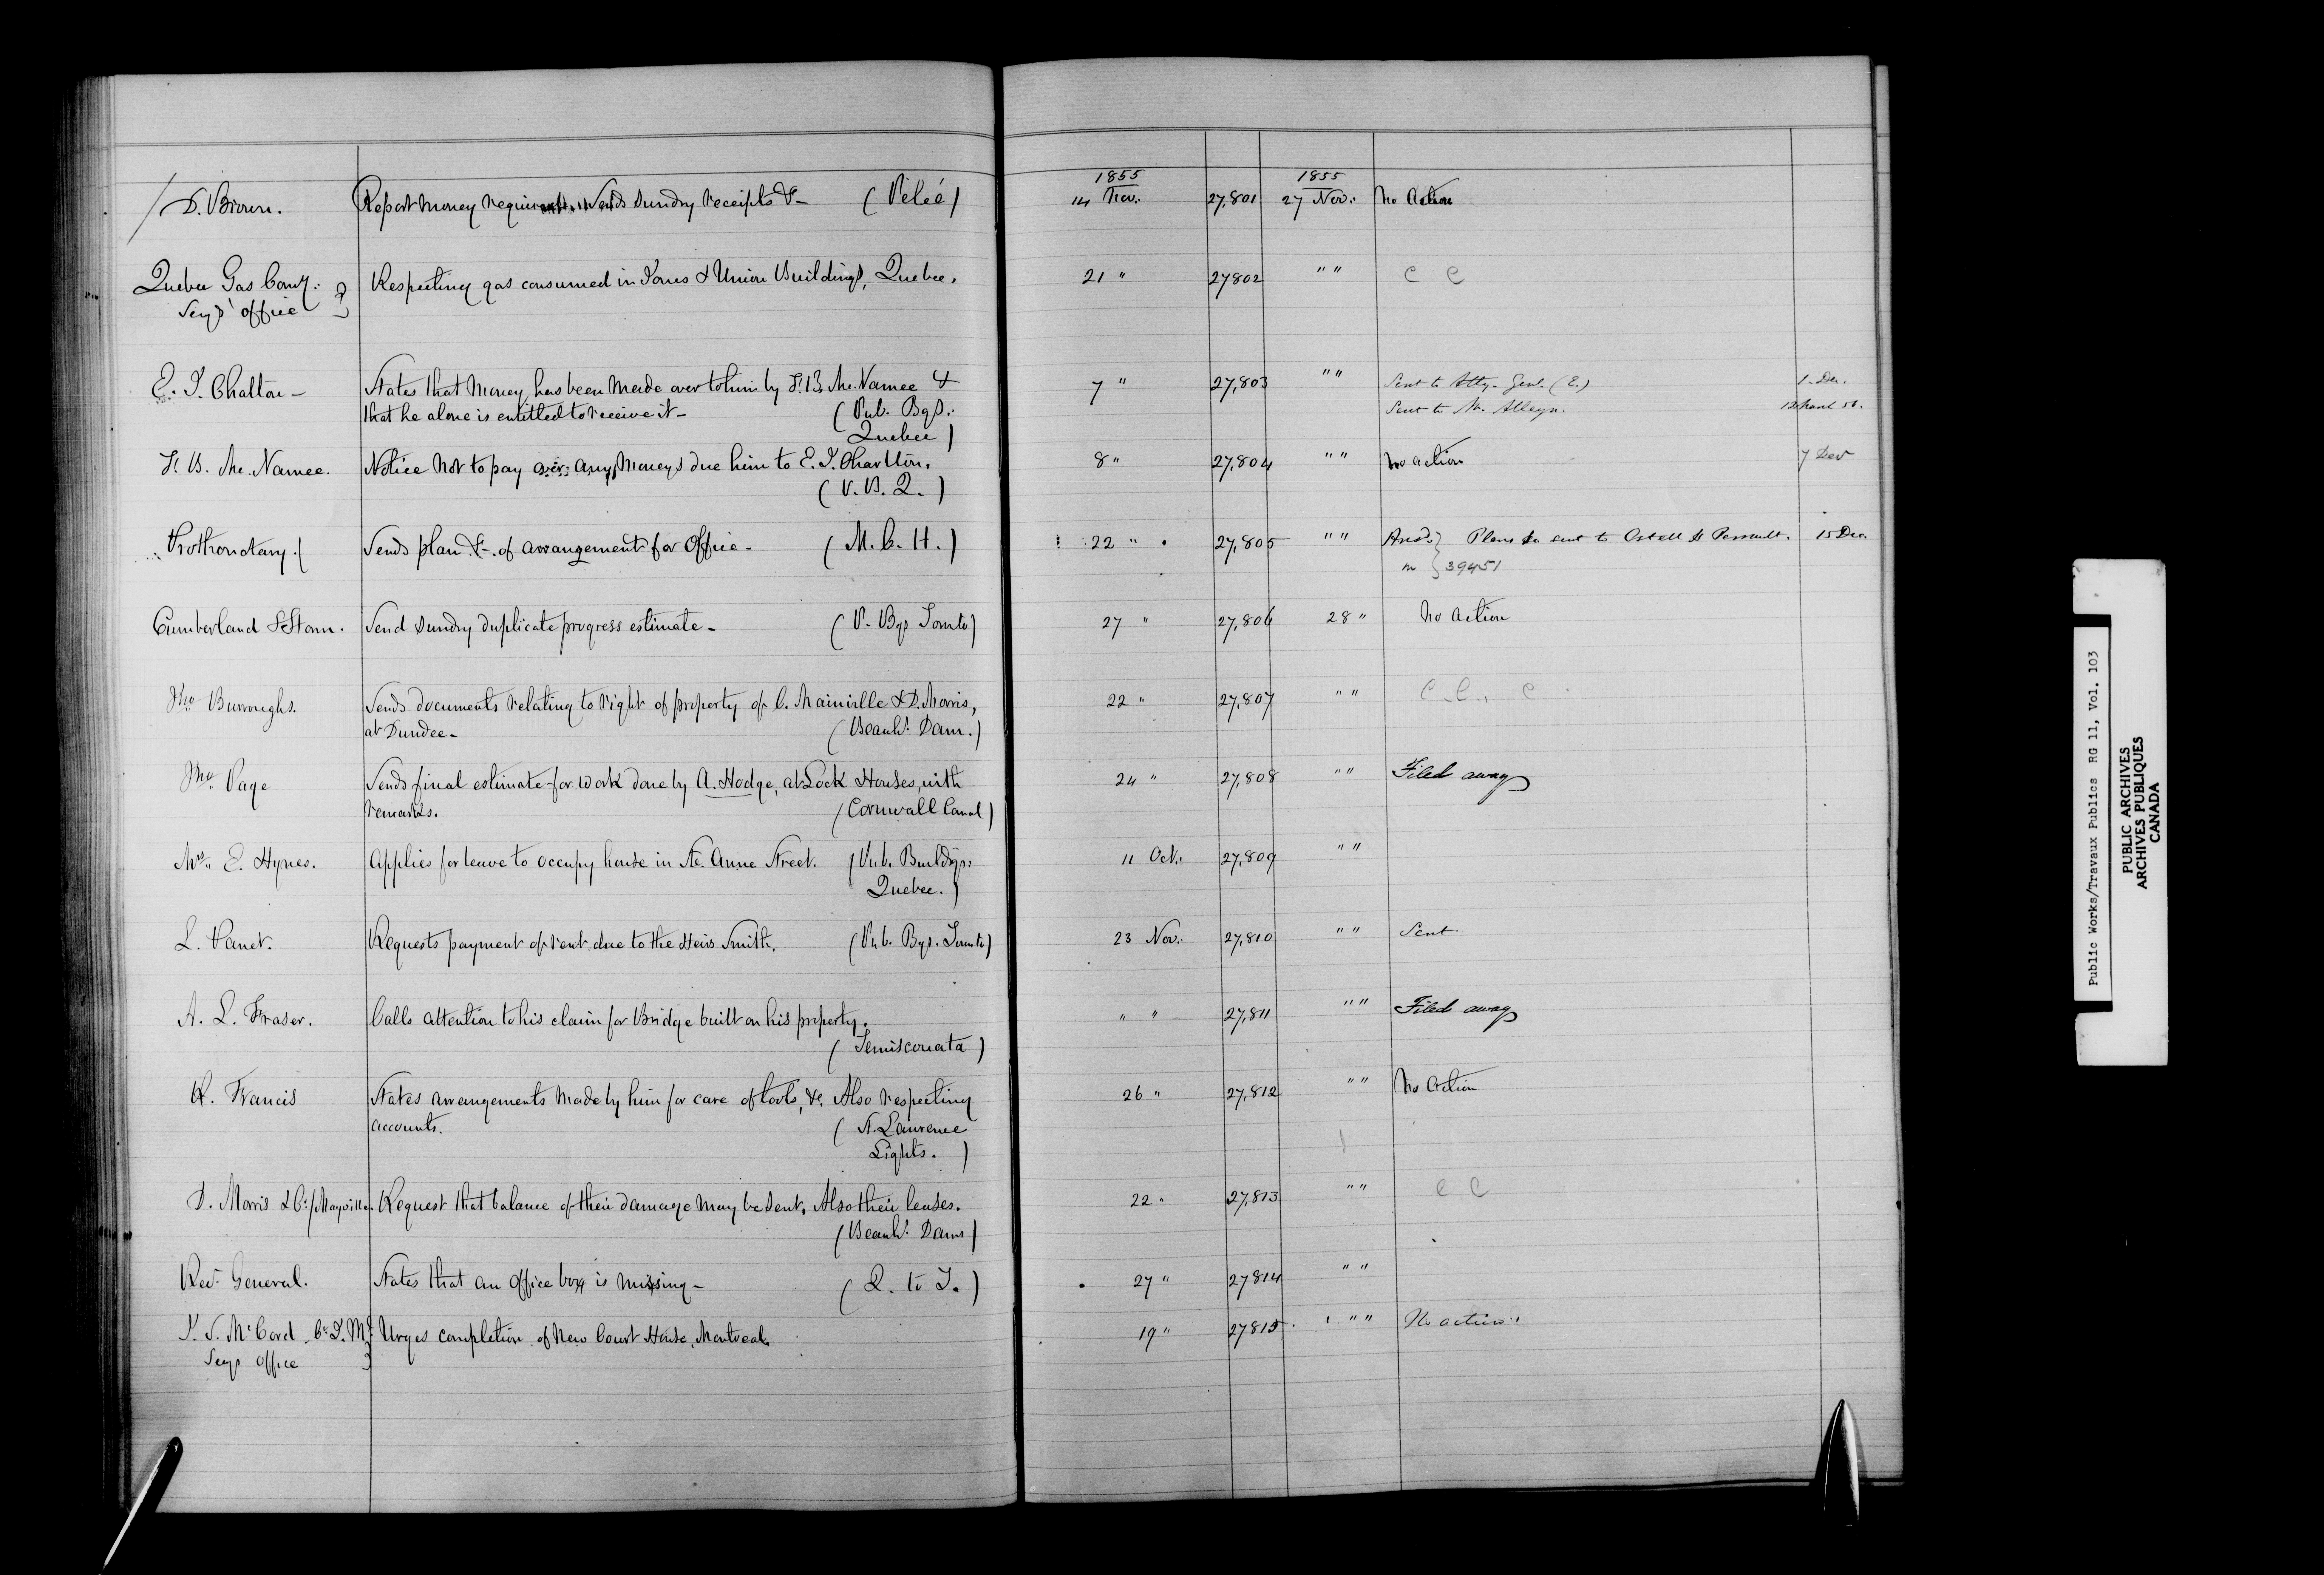 1855 1855
D. Brown. Report money required. Sends sundry receipts &c (Pelée) 14 Nov. 27,801 27 Nov. No Action
Quebec Gas Comy. Respecting gas consumed in Jones & Union Buildings, Quebec. 21 " 27802 " " C C
Secy's office
E. T. Chalton - States that money has been made over to him by F. B. Mc.Namee & 7 " 27,803 " " Sent to Atty. Genl. (E.) 1 Dec.
that he alone is entitled to receive it - (Pub. Bgs. Sent to Mr. Alleyn.
Quebec)
F. B. Mc.Namee. Notice not to pay over any moneys due him to E. T. Charlton. 8 " 27,804 " " No action 7 Dec
(P. B. Q.)
Prothonotary. Sends plan &c. of arrangement for Office - (M. C. H.) 22 " 27,805 " " Ansd. Plans sent to Ostell & Perrault. 15 Dec.
in 39451
Cumberland & Storm. Send sundry duplicate progress estimate - (P. Bgs Toronto) 27 " 27,806 28 " No action
Jno Burroughs. Sends documents relating to right of property of C. Mainville & D. Morris, 22 " 27,807 " " C. C. C
at Dundee - (Beauhs. Dam.)
Jno Page Sends final estimate for work done by A. Hodge, at Lock Houses, with 24 " 27,808 " " Filed away
remarks. (Cornwall Canal)
Mrs. E. Hynes. Applies for leave to occupy house in Ste. Anne Street. (Pub. Buildgs: 11 Oct. 27,809 " "
Quebec.)
L. Panet. Requests payment of rent due to the Heirs Smith. (Pub. Bgs. Toronto) 23 Nov. 27,810 " " Sent
A. L. Fraser. Calls attention to his claim for Bridge built on his property. " " 27,811 " " Filed away
(Temiscouata)
W. Francis States arrangements made by him for care of tools, &c. Also respecting 26 " 27,812 " " No Action
accounts. (St. Lawrence
Lights.)
D. Morris & C. Mayville. Request that balance of their damage may be sent. Also their leases. 22 " 27,813 " " C C
(Beauhs. Dam)
Recr. General. States that an Office box is missing - (Q. to T.) 27 " 27814 " "
McCord Urges completion of New Court House, Montreal. 19 " 27815 " " No action
Secys Office
Public Works/Travaux Publics RG 11, Vol. 103
PUBLIC ARCHIVES
ARCHIVES PUBLIQUES
CANADA